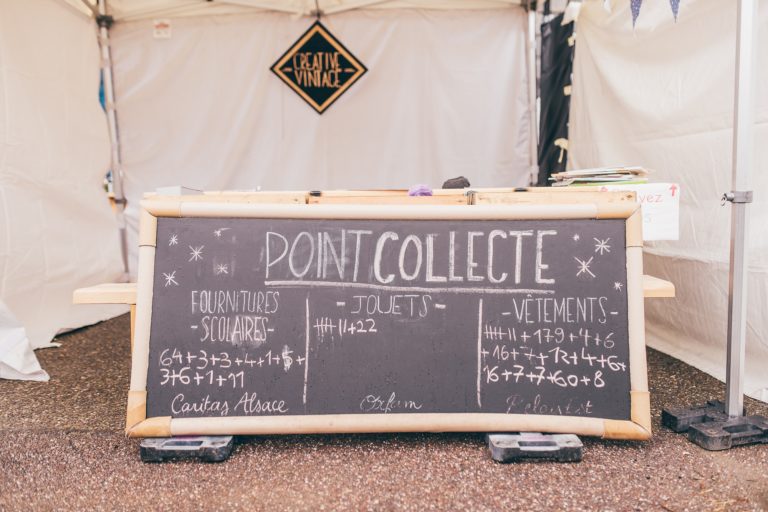 CREATIVE
VINTAGE
POINT COLLECTE
FOURNITURES
- SCOLAIRES -
64+3+3+4+1+5+
3+6+1+11
Caritas Alsace
- JOUETS -
11+22
Oxfam
- VÊTEMENTS -
+16+7+12+4+6+
16+7+7+60+8